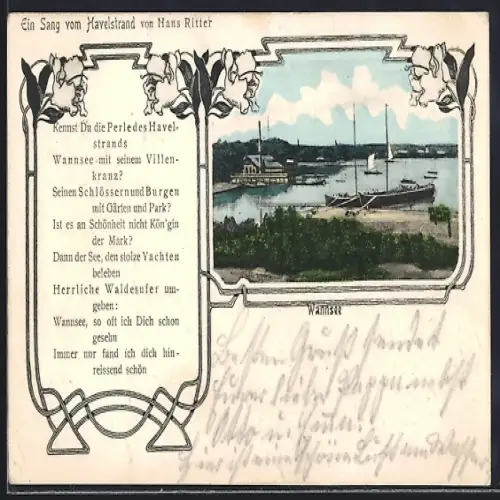 Ein Sang vom Havelstrand von Hans Ritter
Kennst Du die Perle des Havel-
strands
Wannsee mit seinem Villen-
kranz?
Seinen Schlössern und Burgen
mit Gärten und Park?
Ist es an Schönheit nicht Kön'gin
der Mark?
Dann der See, den stolze Yachten
beleben
Herrliche Waldesufer um-
geben:
Wannsee, so oft ich Dich schon
gesehn
Immer nur fand ich dich hin-
reissend schön
Wannsee
Besten Gruß sendet
Otto
hier ist eine schöne Luft am Wasser